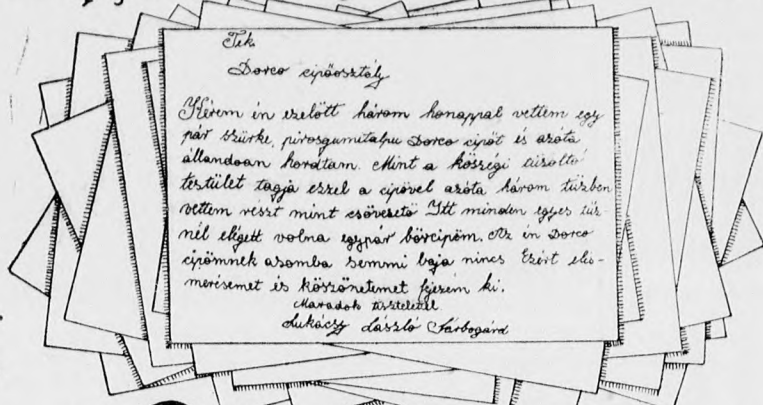 Tek.
Dorco cipőosztály
Kérem én ezelőtt három honappal vettem egy
pár szürke, pirosgumitalpu Dorco cipőt és azóta
állandoan hordtam. Mint a községi tüzoltó
testület tagja ezzel a cipővel azóta három tüzben
vettem részt mint csővezető Itt minden egyes tüz-
nél elégett volna egypár bőrcipőm. Az én Dorco
cipőmnek azomba semmi baja nincs Ezért elis-
merésemet és köszönetemet fejezem ki.
Maradok tisztelettel
Lukácsy László Sárbogárd